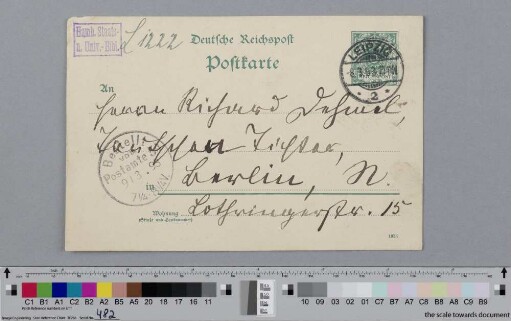 Hamb. Staats-
u. Univ.-Bibl.
L 1222
Deutsche Reichspost
Postkarte
LEIPZIG
2
An
Herrn Richard Dehmel,
Deutschen Dichter,
Bestellt
vom
Postamte
9/3
7½-8¼V.
in Berlin, N.
Wohnung
(Straße und Hausnummer)
Lothringerstr. 15
C1 B1 A1 C2 B2 A2 B5 A5 20 18 17 16 11
10 09 03 02 01 C7 B7 A7 C8 B8 A8 C9 B9
482
the scale towards document